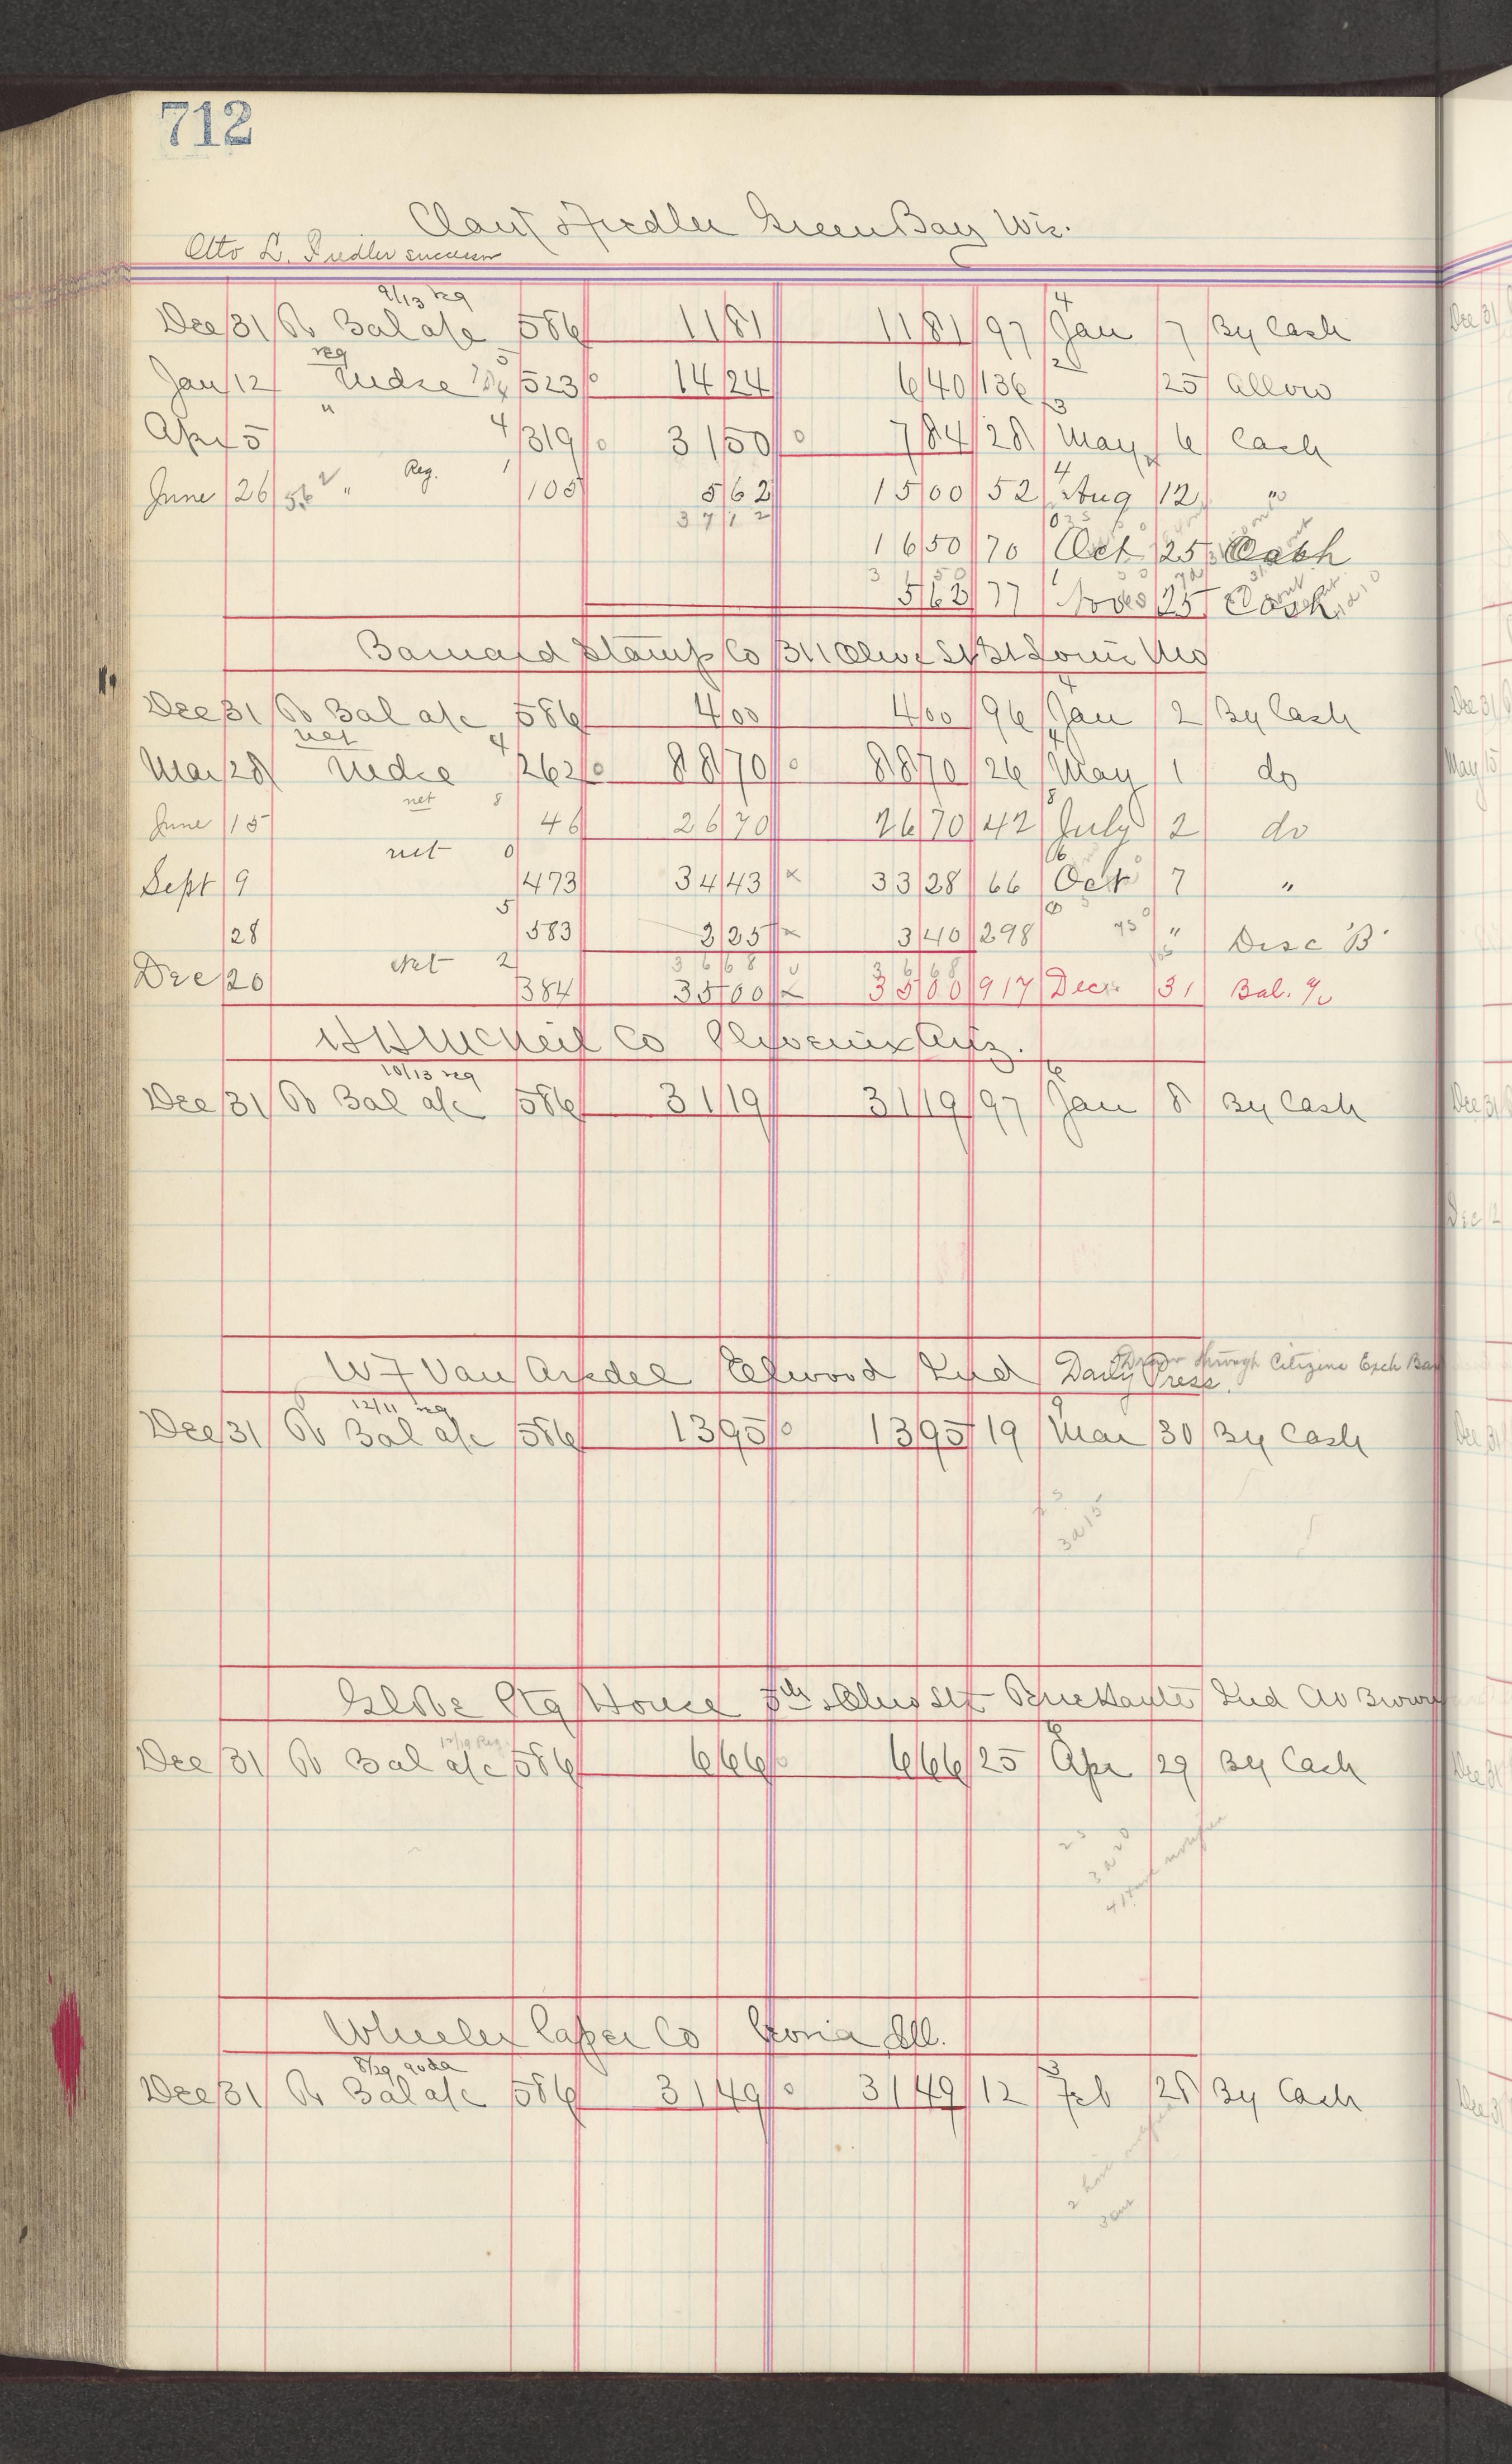 712
Green Bay Wis.
Otto L. Fiedler successor
9/13 reg
Dec 31 To Bal a/c 586 11 81 11 81 97 Jan 7 By Cash
reg
Jan 12 Mdse 523 14 24 6 40 136 25 Allow
Apr 5 " 4 319 31 50 7 84 28 May 6 Cash
June 26 562 " Reg. 1 105 5 62 15 00 52 Aug 12 "
37 12
16 50 70 Oct 25 Cash
5 63 77 Nov 25 Cash
Barnard Stamp Co 311 Olive St St Louis Mo
Dec 31 To Bal a/c 586 4 00 4 00 96 Jan 2 By Cash
net
Mar 28 Mdse 4 262 88 70 88 70 26 May 1 do
June 15 net 8 46 26 70 26 70 42 July 2 do
Sept 9 net 0 473 34 43 33 28 66 Oct 7 "
28 5 583 2 25 3 40 298 " Disc 'B'
36 68 36 68
Dec 20 net 2 384 35 00 35 00 917 Dec 31 Bal. a/c
H H McNeil Co Phoenix Ariz.
10/13 reg
Dec 31 To Bal a/c 586 31 19 31 19 97 Jan 8 By Cash
W F Van Arsdel Elwood Ind Daily Press.
through Citizens Exch Ban
12/11 reg
Dec 31 To Bal a/c 586 13 95 13 95 19 Mar 30 By Cash
3a15
Globe Ptg House 5th & Ohio Sts Terre Haute Ind
12/19 Reg.
Dec 31 To Bal a/c 586 6 66 6 66 25 Apr 29 By Cash
25
3 a 20
Wheeler Paper Co Peoria Ill.
Dec 31 To Bal a/c 586 31 49 31 49 12 Feb 28 By Cash